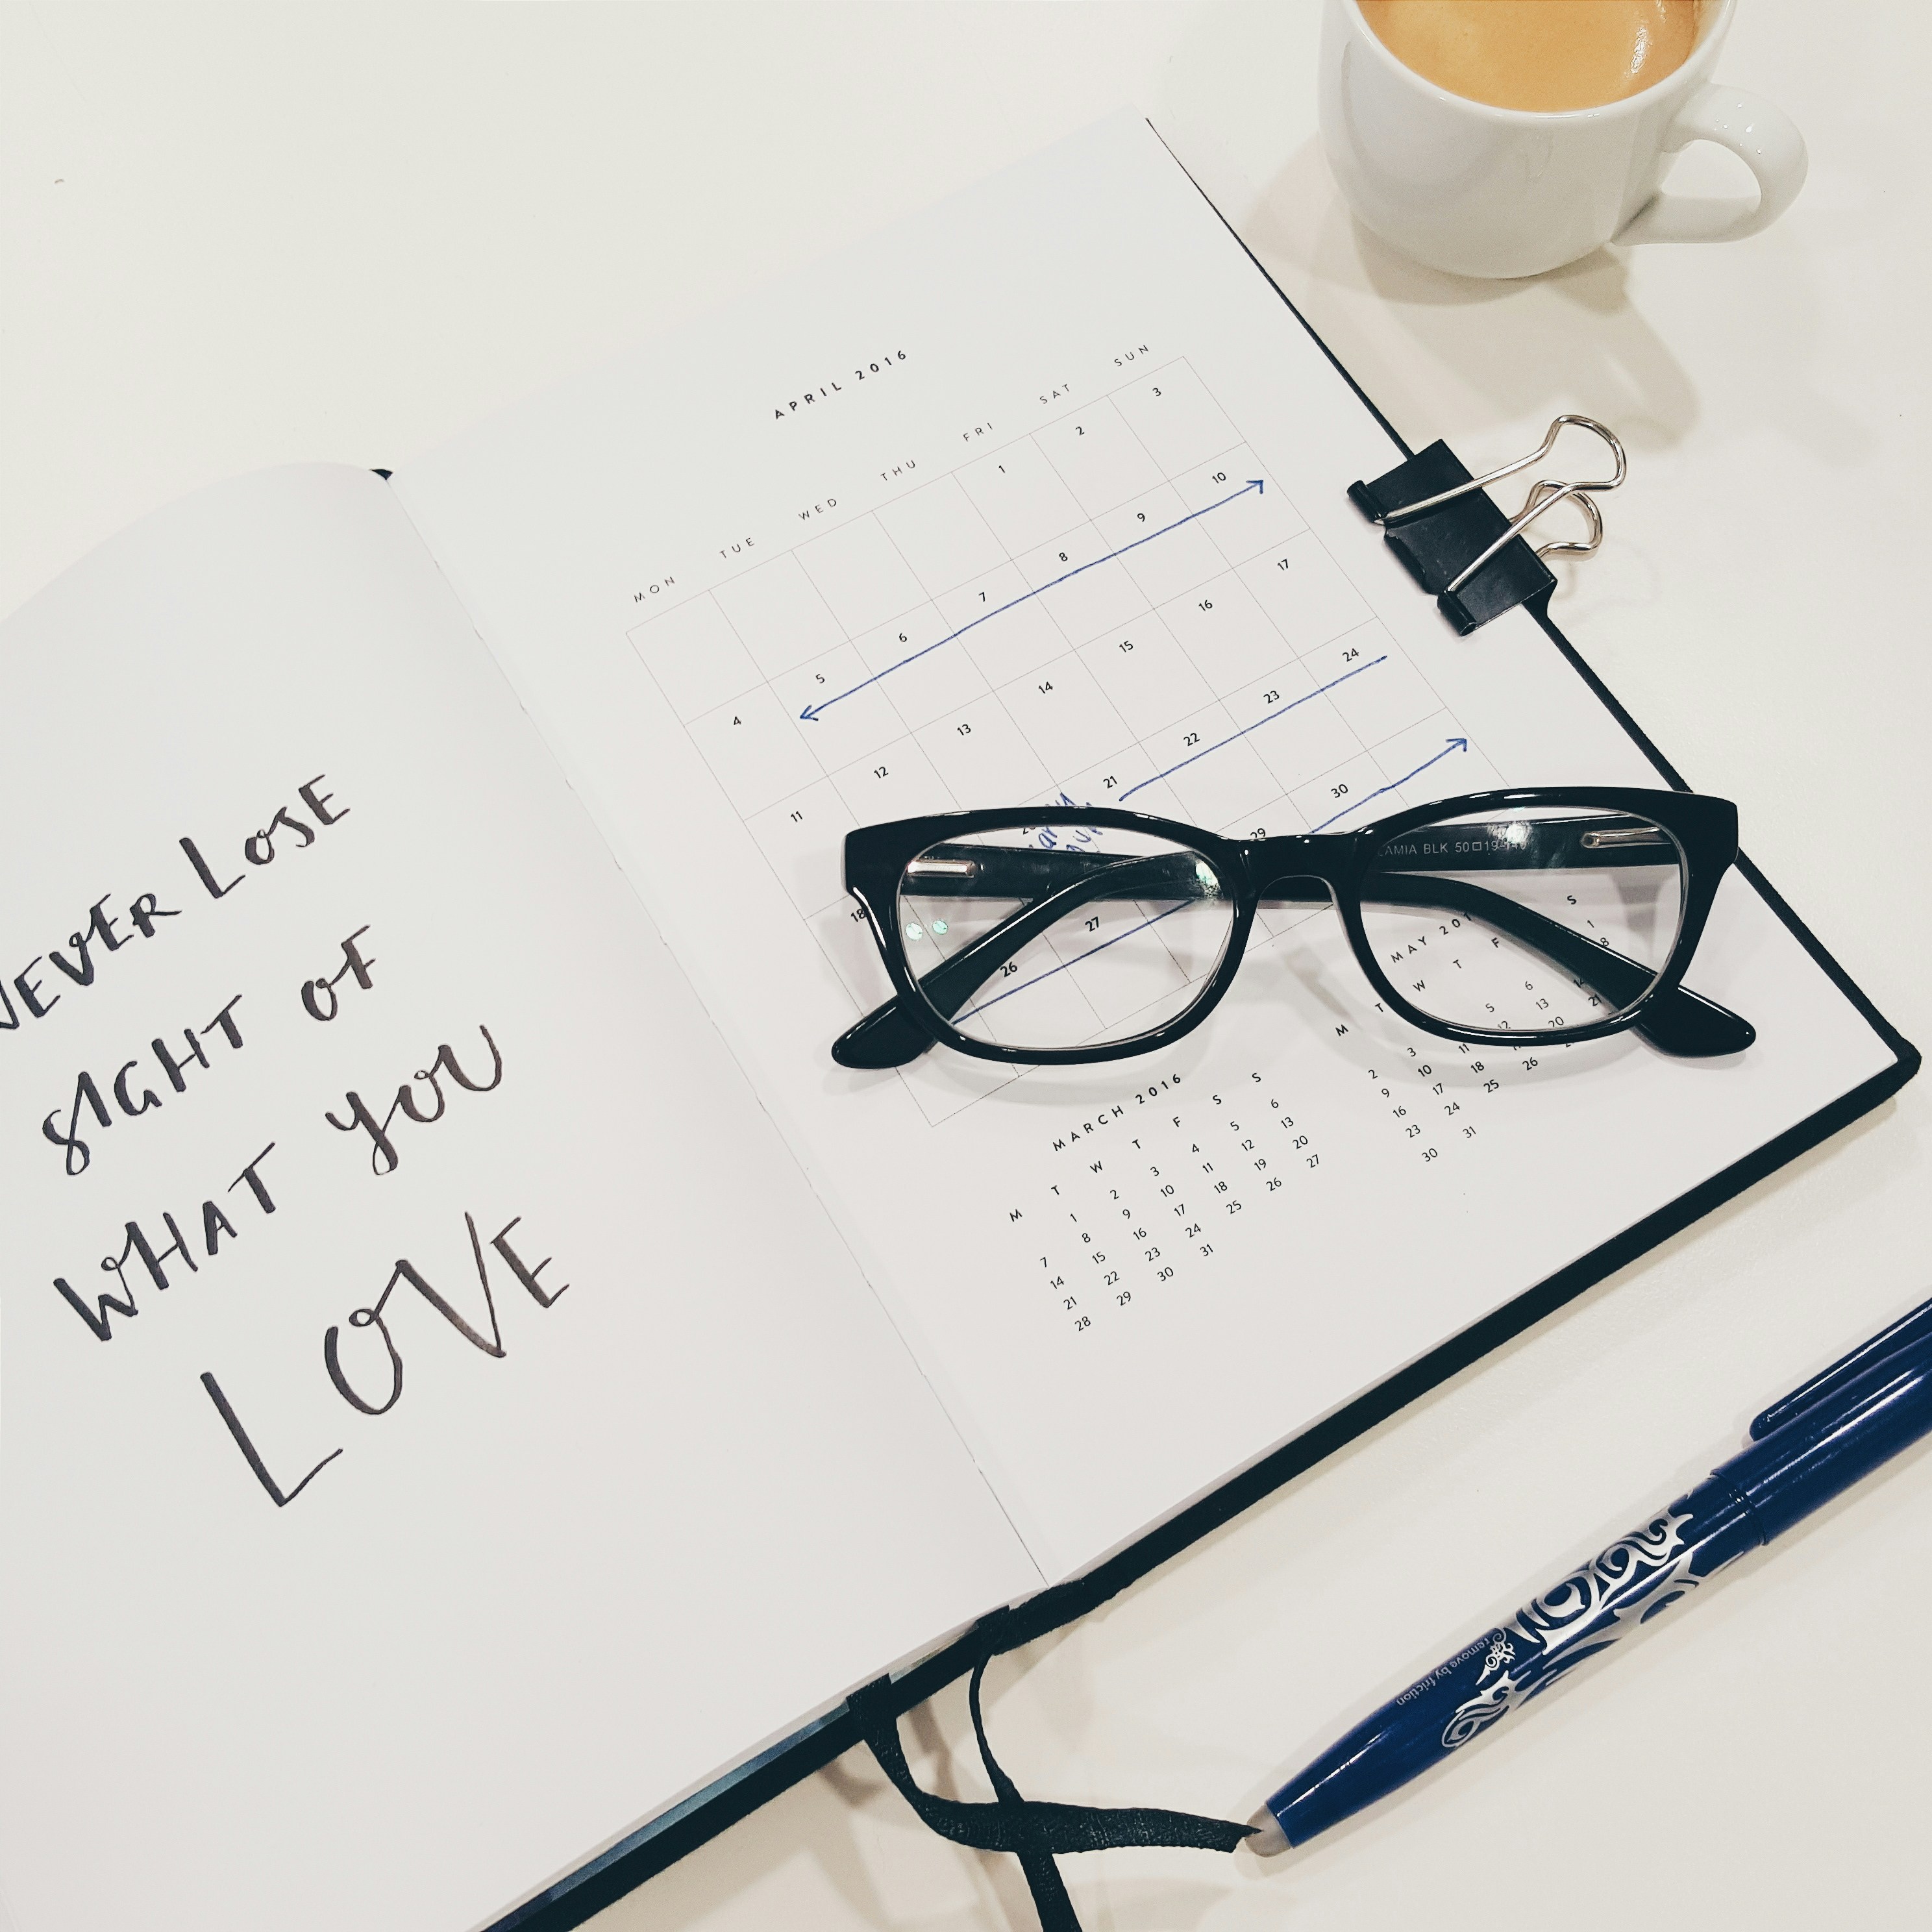 NEVER LOSE
SIGHT OF
WHAT YOU
LOVE
APRIL 2016
MON TUE WED THU FRI SAT SUN
1 2 3
4 5 6 7 8 9 10
11 12 13 14 15 16 17
18 21 22 23 24
26 27 29 30
LAMIA BLK 50□19-140
MARCH 2016
M T W T F S S
1 2 3 4 5 6
7 8 9 10 11 12 13
14 15 16 17 18 19 20
21 22 23 24 25 26 27
28 29 30 31
MAY 201
M T W T F S
1
2 3 5 6 8
9 10 11 12 13 14
16 17 18 20 21
23 24 25 26
30 31
remove by friction